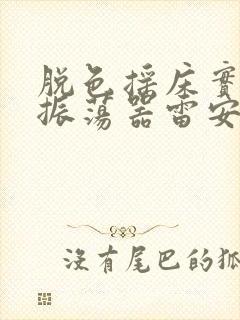 脱色摇床實
振荡器雷安
沒有尾巴的狐